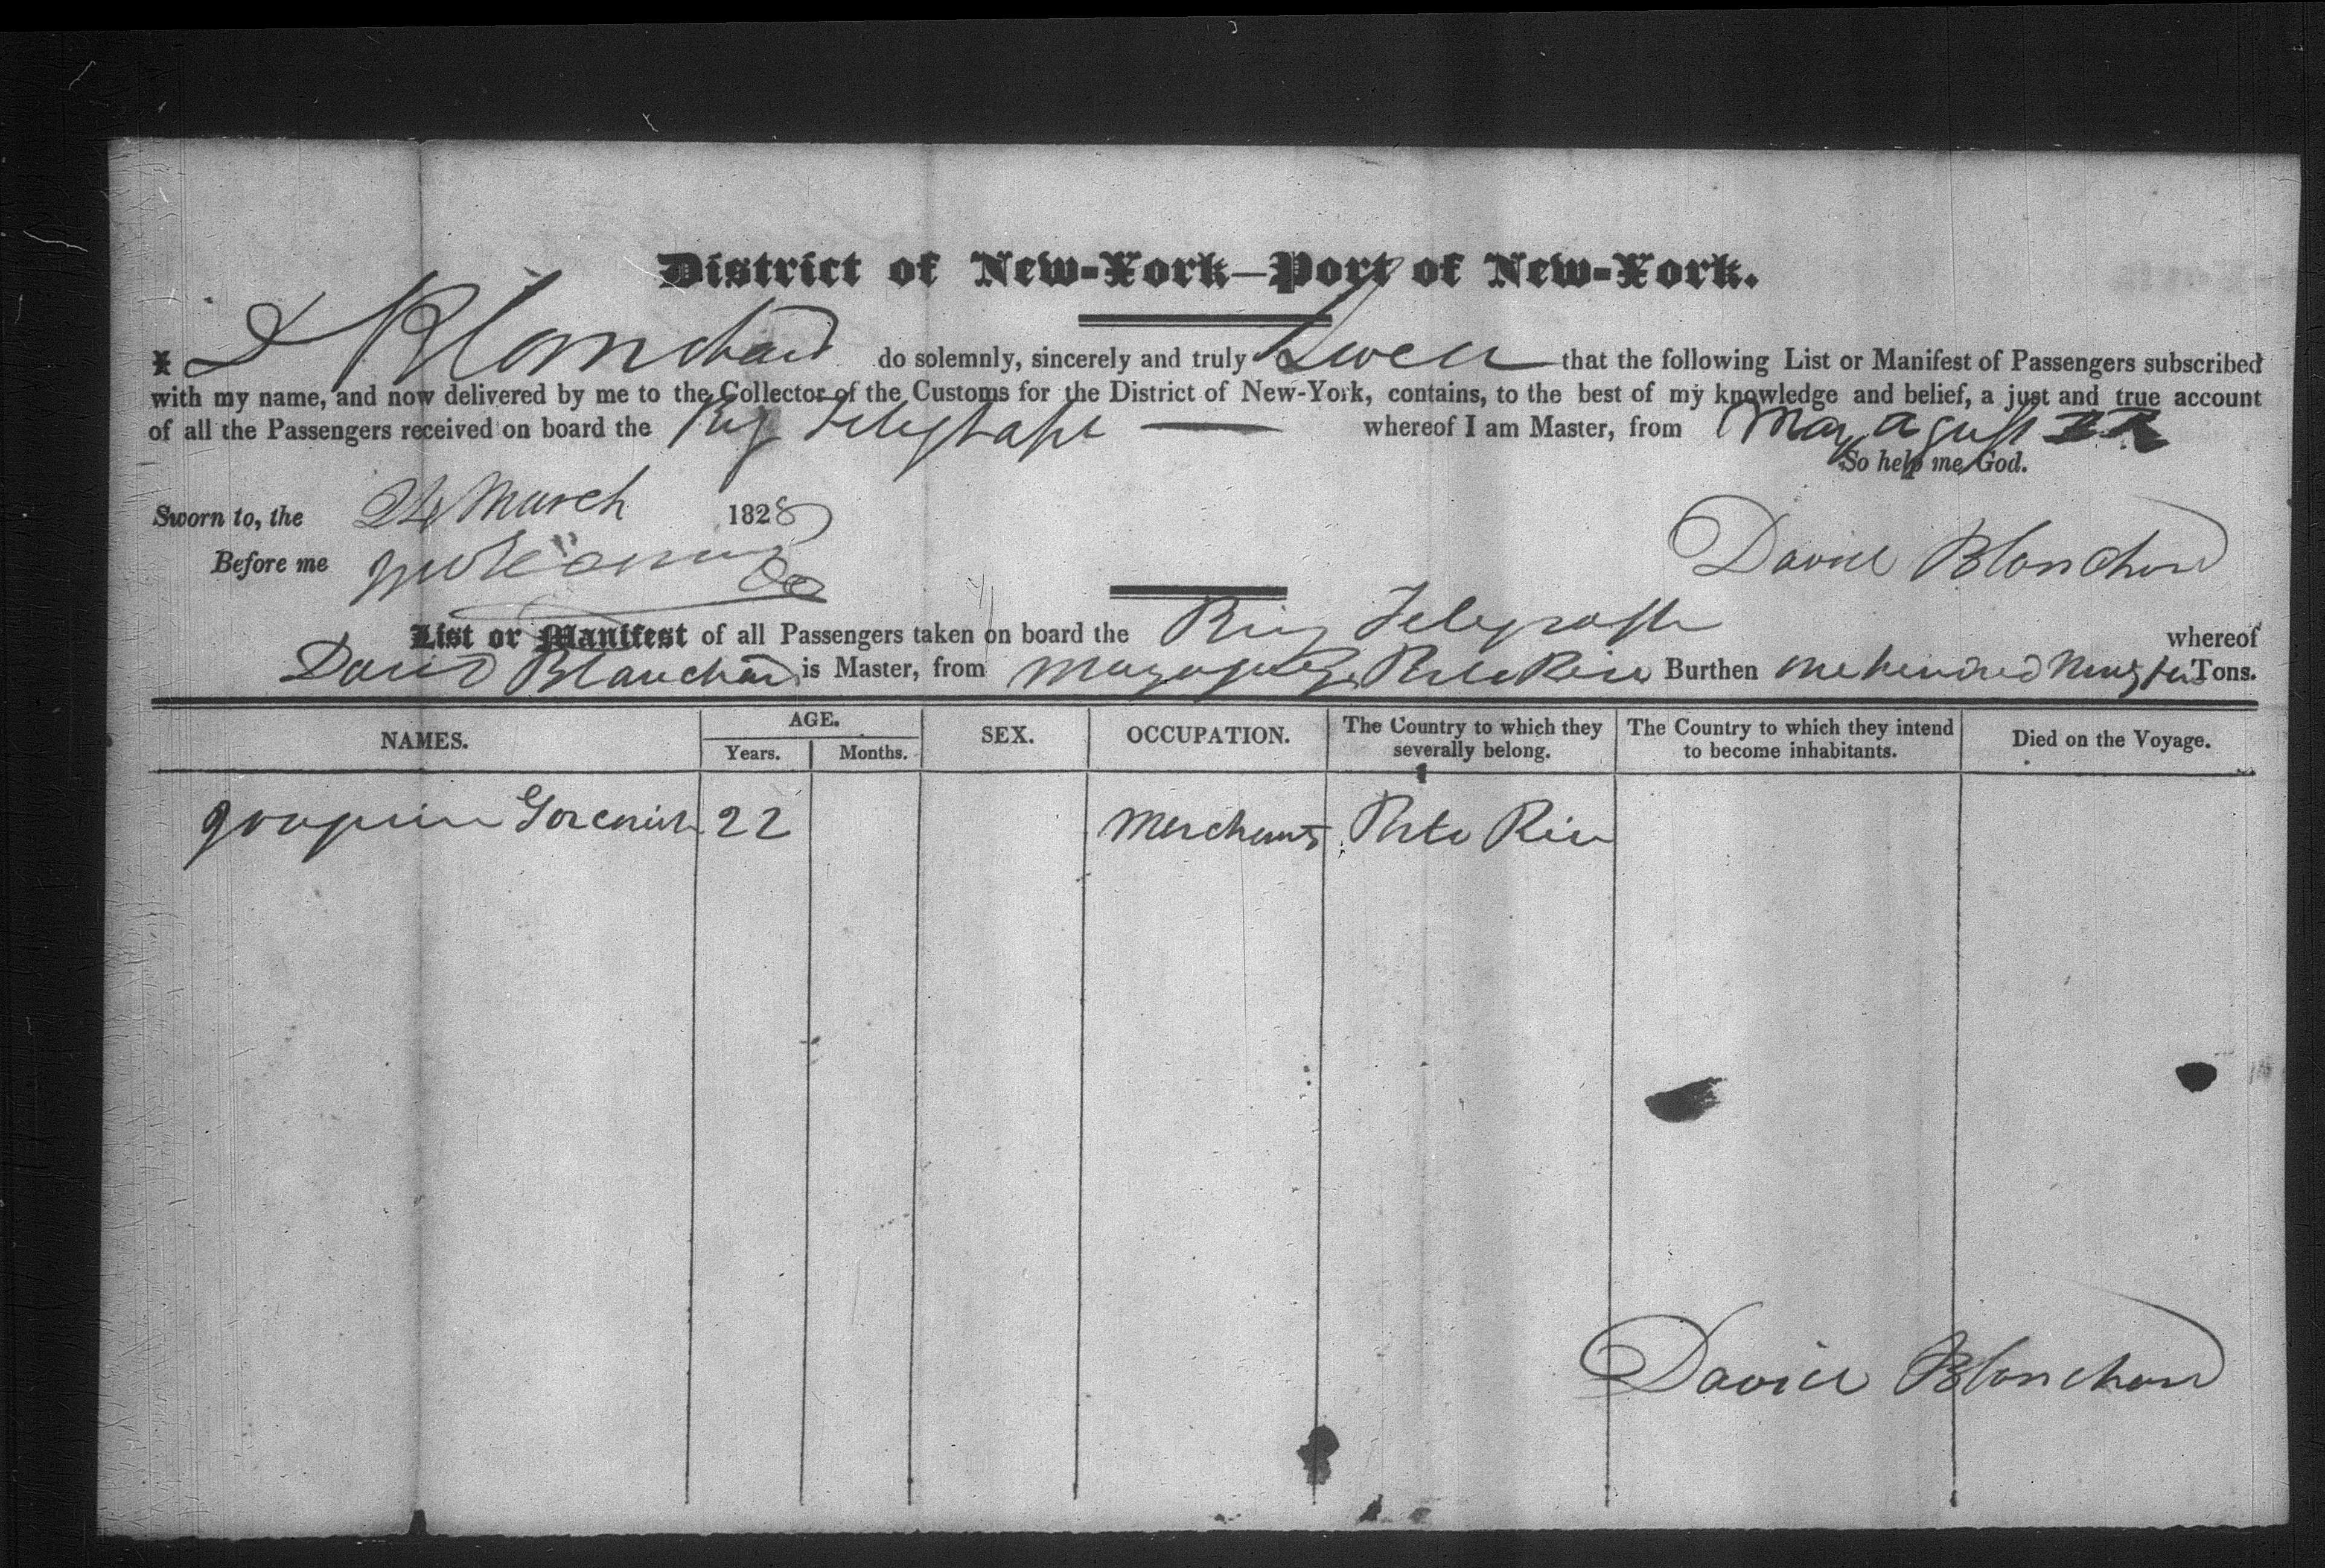 District of New-York—Port of New-York.
I D Blanchard do solemnly, sincerely and truly Swear that the following List or Manifest of Passengers subscribed
with my name, and now delivered by me to the Collector of the Customs for the District of New-York, contains, to the best of my knowledge and belief, a just and true account
of all the Passengers received on board the Brig Telegraph whereof I am Master, from
So help me God.
Sworn to, the 24 March 1828
Before me
David Blanchard
List or Manifest of all Passengers taken on board the Brig Telegraph whereof
David Blanchard is Master, from Porto Rico Burthen one hundred Tons.
NAMES. AGE. SEX. OCCUPATION. The Country to which they severally belong. The Country to which they intend to become inhabitants. Died on the Voyage.
Years. Months.
22 Merchant Porto Rico
David Blanchard